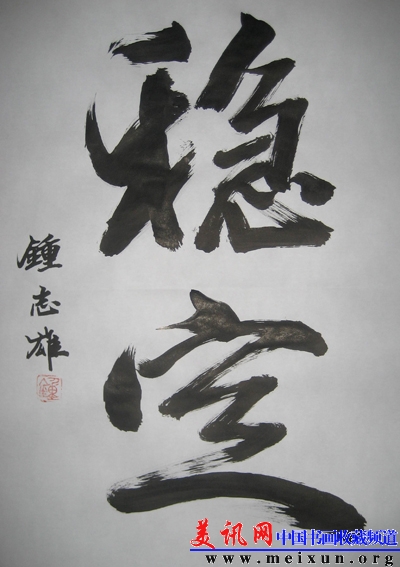 稳定
鍾志雄
美讯网 中国书画收藏频道
www.meixun.org